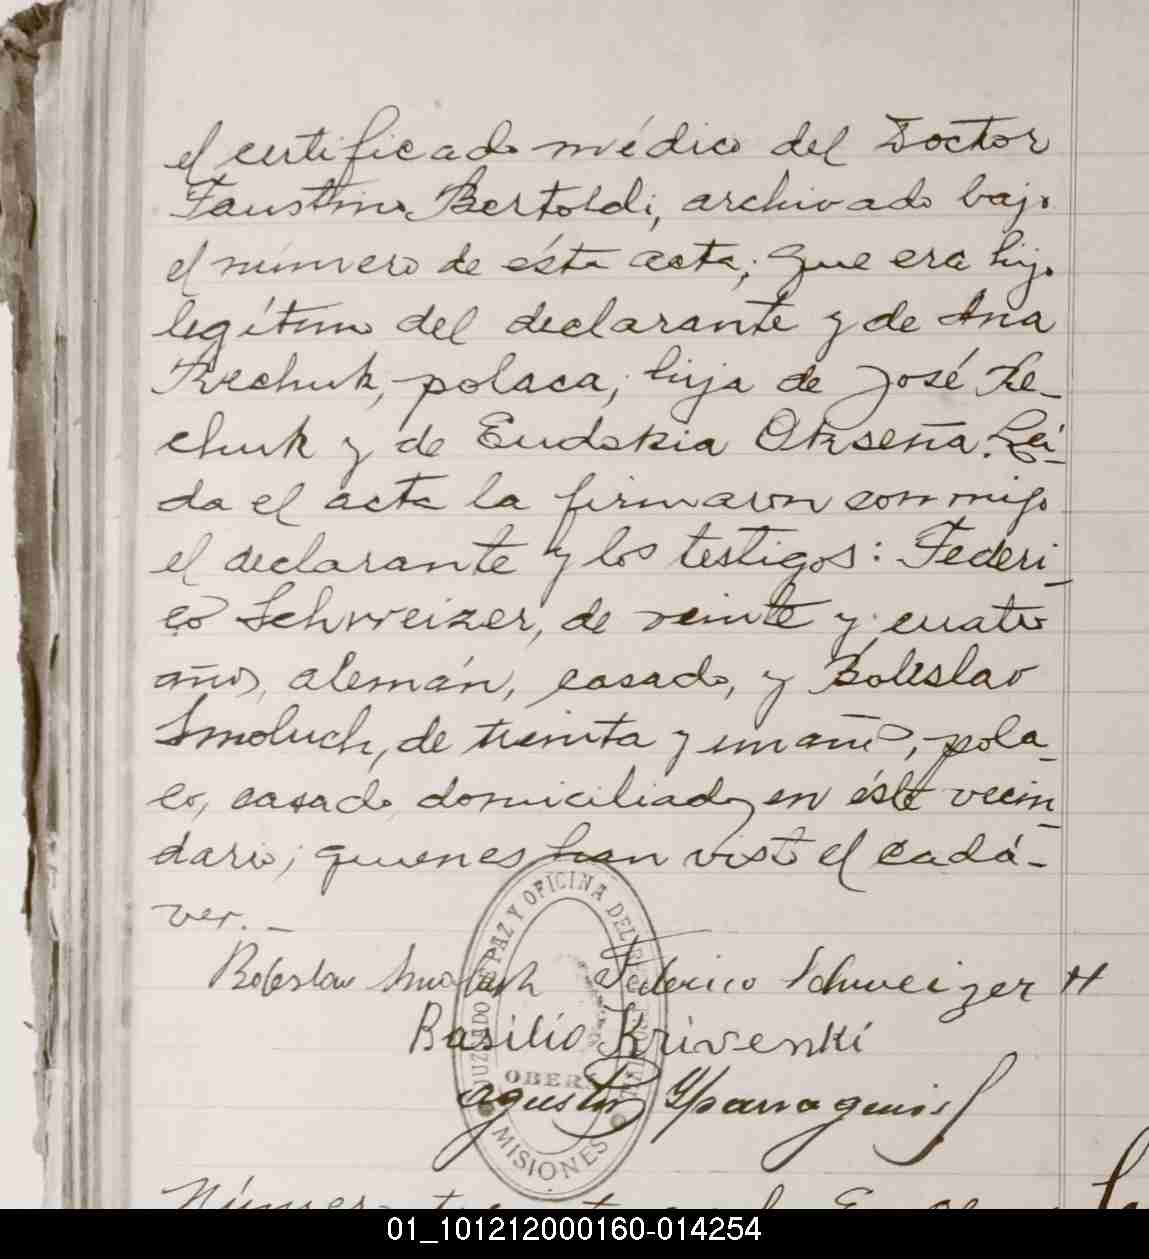 el certificado médico del Doctor
Faustino Bertoldi, archivado bajo
el número de ésta acta; que era hijo
legítimo del declarante y de Ana
Rechuk, polaca, hija de José Re-
chuk y de Eudokia Oksena. Leí-
da el acta la firmaron conmigo
el declarante y los testigos: Federi-
co Schweizer, de veinte y cuatro
años, alemán, casado, y Boleslao
Smoluch, de treinta y un años, pola-
co, casado domiciliados en éste vecin-
dario; quienes han visto el cadá-
ver.-
Boleslao Smoluch Federico Schweizer H
Basilio Krivenki
Agustín Yparraguirre
JUZGADO DE PAZ Y OFICINA DEL REG
OBERÁ
MISIONES
Número
01_101212000160-014254